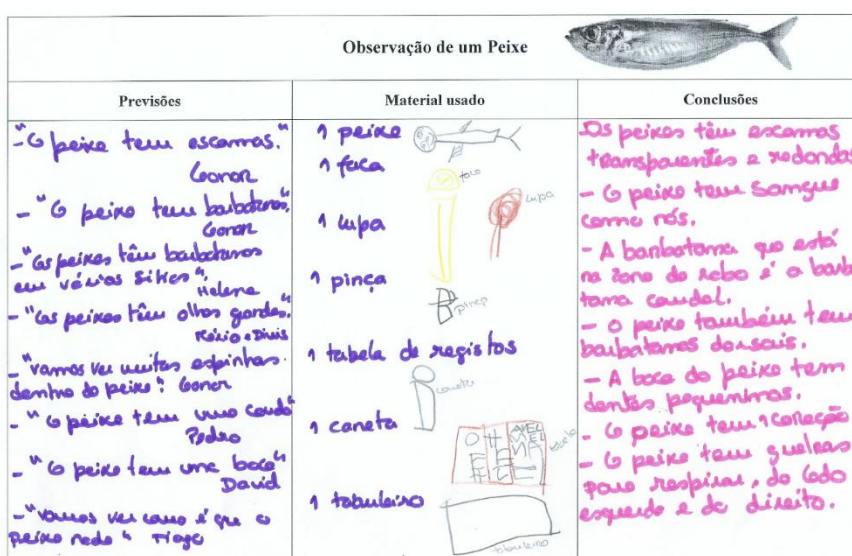 Observação de um Peixe
Previsões
-"O peixe tem escamas."
Leonor
-"O peixe tem barbatanas."
Leonor
-"Os peixes têm barbatanas
em vários sítios".
Helena
-"Os peixes têm olhos grandes".
e Dinis
-"Vamos ver muitas espinhas
dentro do peixe". Leonor
-"O peixe tem uma cauda"
Pedro
-"O peixe tem uma boca"
David
-"Vamos ver como é que o
peixe nada" Tiago
Material usado
1 peixe
1 faca
faca
1 lupa
lupa
1 pinça
pinça
1 tabela de registos
1 caneta
caneta
tabela
1 tabuleiro
tabuleiro
Conclusões
-Os peixes têm escamas
transparentes e redondas
- O peixe tem sangue
como nós.
- A barbatana que está
na zona do rabo é a barba
tana caudal.
- O peixe também tem
barbatanas dorsais.
- A boca do peixe tem
dentes pequeninos.
- O peixe tem 1 coração
- O peixe tem guelras
para respirar, do lado
esquerdo e do direito.